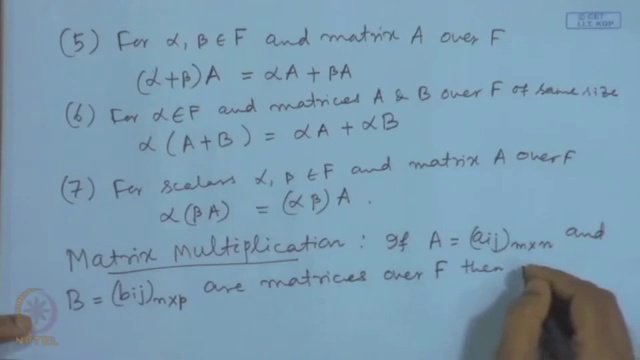 © CET
I.I.T. KGP
(5) For α, β ∈ F and matrix A over F
(α+β)A = αA + βA
(6) For α∈F and matrices A & B over F of same size
α (A+B) = αA + αB
(7) For scalars α, β ∈ F and matrix A over F
α(βA) = (αβ) A .
Matrix Multiplication : If A = (aij)m×n and
B = (bij)n×p are matrices over F then
NPTEL